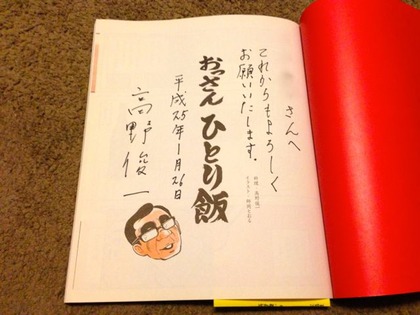 さんへ
これからもよろしく
お願いいたします。
おっさん ひとり飯
平成25年1月26日
高野俊一